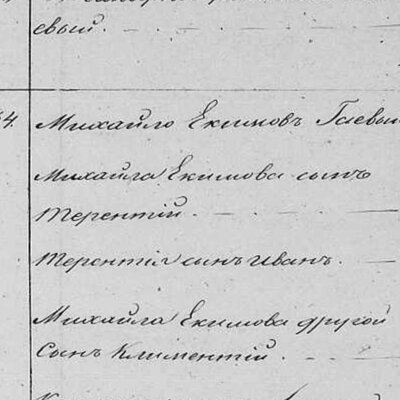 евый.
4.
Михайло Екимовъ Гаевый
Михайла Екимова сынъ
Терентій.
Терентія сынъ Иванъ.
Михайла Екимова другой
Сынъ Климентій.